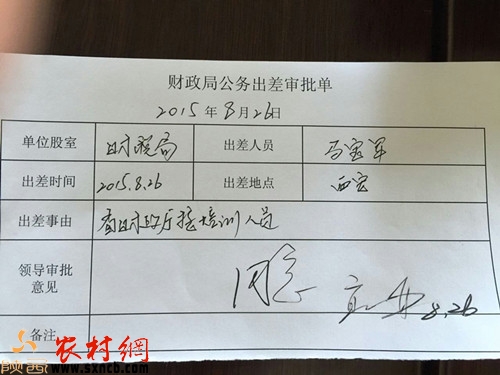 财政局公务出差审批单
2015年8月26日
单位股室 财税局 出差人员 马宝军
出差时间 2015.8.26 出差地点 西安
出差事由 省财政厅接培训人员
领导审批意见 同意 8.26
备注
陕西农村網
www.sxncb.com